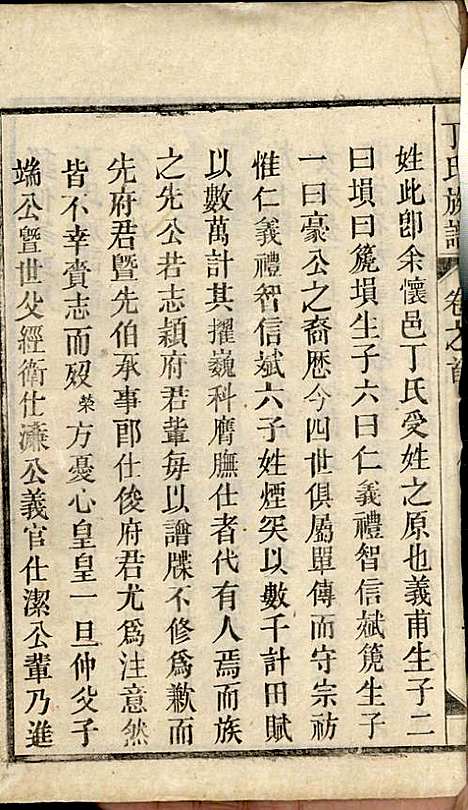 丁氏族譜 卷之首
姓此卽余懷邑丁氏受姓之原也義甫生子二
曰塤曰篪塤生子六曰仁義禮智信斌篪生子
一曰豪公之裔歷今四世俱屬單傳而守宗祊
惟仁義禮智信斌六子姓煙矣以數千計田賦
以數萬計其擢巍科膺膴仕者代有人焉而族
之先公若志穎府君輩每以譜牒不修爲歉而
先府君暨先伯承事郎仕俊府君尤爲注意然
皆不幸賫志而歿榮方憂心皇皇一旦仲父子
端公暨世父經衛仕濂公義官仕潔公輩乃進